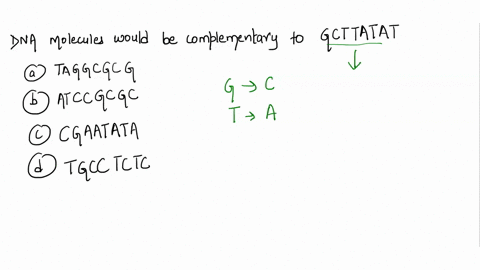 DNA molecules would be complementary to GCTTATAT
a TAGGCGCG
b ATCCGCGC
c CGAATATA
d TGCCTCTC
G → C
T → A